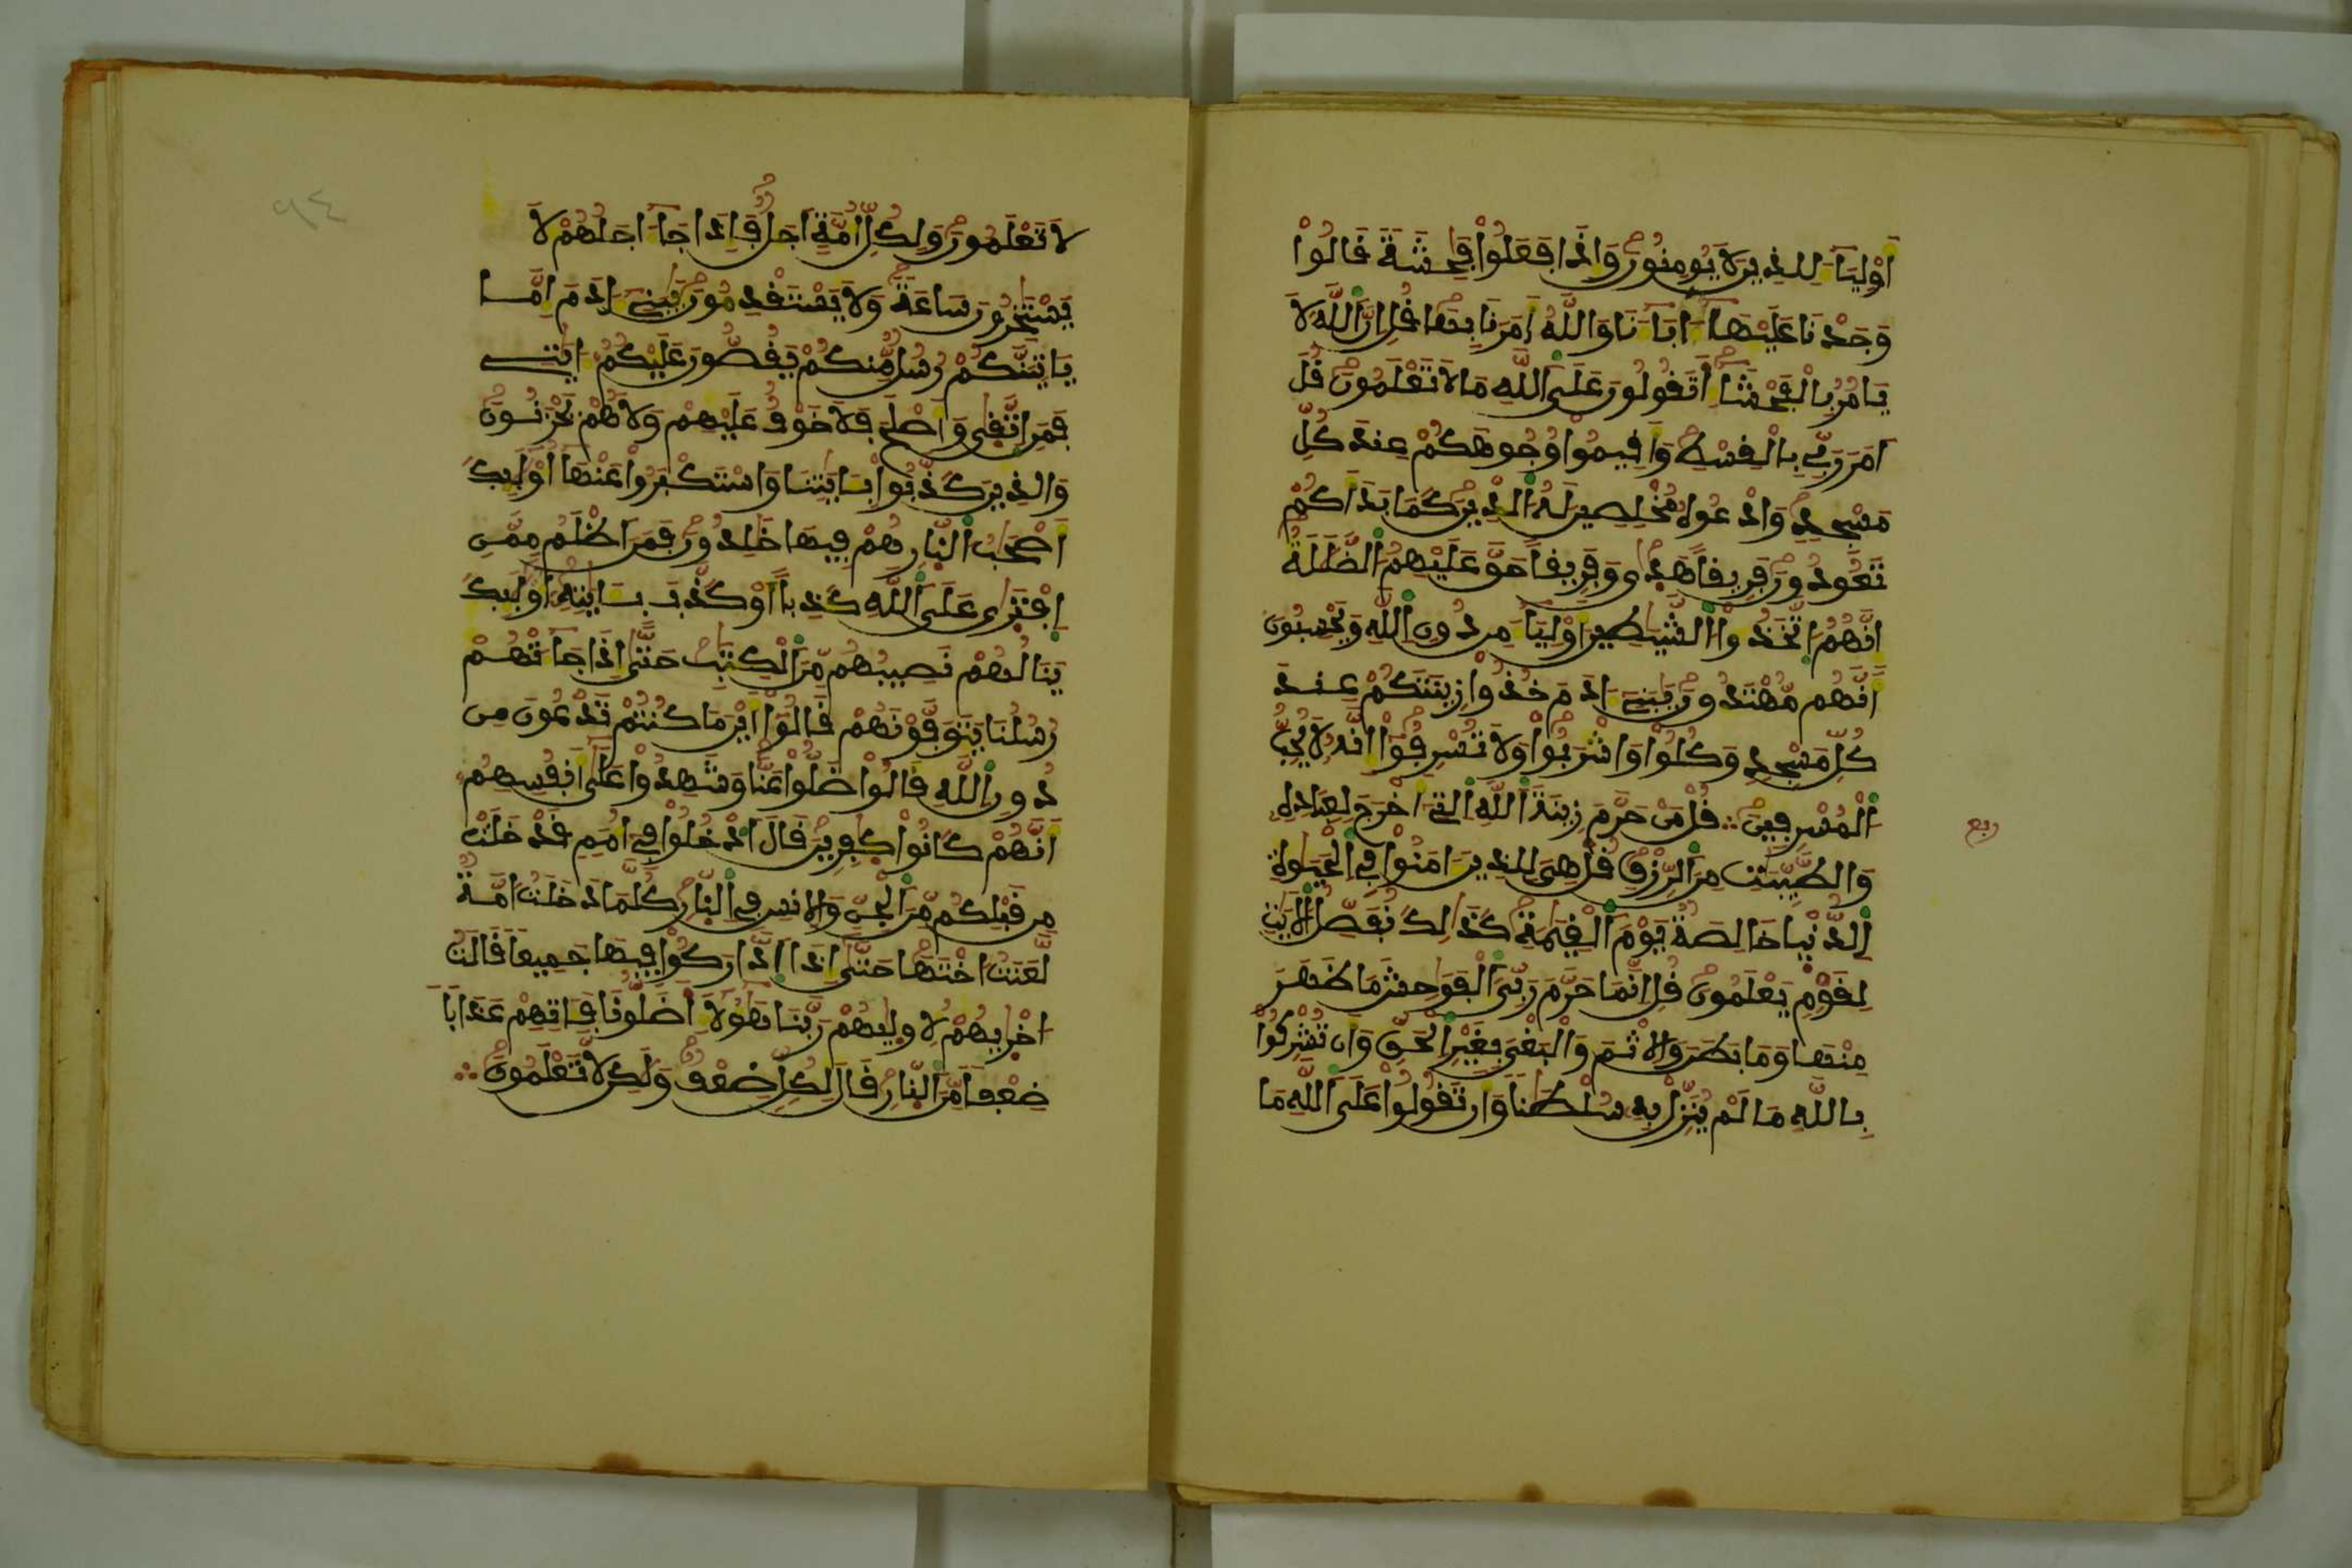 أَوْلِيَآءَ لِلذِينَ لَا يُومِنُونَ وَإِذَا فَعَلُواْ فَٰحِشَةٗ قَالُواْ
وَجَدْنَا عَلَيْهَآ ءَابَآءَنَا وَاللَّهُ أَمَرَنَا بِهَا قُلِ انَّ اَللَّهَ لَا
يَامُرُ بِالْفَحْشَآءِ اَتَقُولُونَ عَلَى اَللَّهِ مَا لَا تَعْلَمُونَ قُلَ
اَمَرَ رَبِّي بِالْقِسْطِ وَأَقِيمُواْ وُجُوهَكُمْ عِندَ كُلِّ
مَسْجِدٖ وَادْعُوهُ مُخْلِصِينَ لَهُ اُلدِّينَ كَمَا بَدَأَكُمْ
تَعُودُونَ فَرِيقاً هَدٜىٰ وَفَرِيقاً حَقَّ عَلَيْهِمُ اُلضَّلَٰلَةُ
إِنَّهُمُ اُتَّخَذُواْ اُلشَّيَٰطِينَ أَوْلِيَآءَ مِن دُونِ اِللَّهِ وَيَحْسِبُونَ
أَنَّهُم مُّهْتَدُونَ يَٰبَنِےٓ ءَادَمَ خُذُواْ زِينَتَكُمْ عِندَ
كُلِّ مَسْجِدٖ وَكُلُواْ وَاشْرَبُواْ وَلَا تُسْرِفُوٓاْ إِنَّهُۥ لَا يُحِبُّ
اُلْمُسْرِفِينَ ؞ قُلْ مَنْ حَرَّمَ زِينَةَ اَللَّهِ اِلتِےٓ أَخْرَجَ لِعِبَادِهِۦ
وَالطَّيِّبَٰتِ مِنَ اَلرِّزْقِ قُلْ هِيَ لِلذِينَ ءَامَنُواْ فِے اِلْحَيَوٰةِ
اِلدُّنْيَا خَالِصَةٞ يَوْمَ اَلْقِيَٰمَةِ كَذَٰلِكَ نُفَصِّلُ اُلَايَٰتِ
لِقَوْمٖ يَعْلَمُونَ قُلِ انَّمَا حَرَّمَ رَبِّيَ اَلْفَوَٰحِشَ مَا ظَهَرَ
مِنْهَا وَمَا بَطَنَ وَالِاثْمَ وَالْبَغْيَ بِغَيْرِ اِلْحَقِّ وَأَن تُشْرِكُواْ
بِاللَّهِ مَا لَمْ يُنَزِّلْ بِهِۦ سُلْطَٰناٗ وَأَن تَقُولُواْ عَلَى اَللَّهِ مَا
ربع
لَا تَعْلَمُونَ وَلِكُلِّ أُمَّةٍ اَجَلٞ فَإِذَا جَآءَ اجَلُهُمْ لَا
يَسْتَٰخِرُونَ سَاعَةٗ وَلَا يَسْتَقْدِمُونَ يَٰبَنِےٓ ءَادَمَ إِمَّا
يَاتِيَنَّكُمْ رُسُلٞ مِّنكُمْ يَقُصُّونَ عَلَيْكُمُۥٓ ءَايَٰتِے
فَمَنِ اِتَّقٜىٰ وَأَصْلَحَ فَلَا خَوْفٌ عَلَيْهِمْ وَلَا هُمْ يَحْزَنُونَ
وَالذِينَ كَذَّبُواْ بِـَٔايَٰتِنَا وَاسْتَكْبَرُواْ عَنْهَآ أُوْلَٰٓئِكَ
أَصْحَٰبُ اُلنّٜارِ هُمْ فِيهَا خَٰلِدُونَ فَمَنَ اَظْلَمُ مِمَّنِ
اِفْتَرٜىٰ عَلَى اَللَّهِ كَذِباً اَوْ كَذَّبَ بِـَٔايَٰتِهِۦٓ أُوْلَٰٓئِكَ
يَنَالُهُمْ نَصِيبُهُم مِّنَ اَلْكِتَٰبِ حَتَّىٰٓ إِذَا جَآءَتْهُمْ
رُسُلُنَا يَتَوَفَّوْنَهُمْ قَالُوٓاْ أَيْنَ مَا كُنتُمْ تَدْعُونَ مِن
دُونِ اِللَّهِ قَالُواْ ضَلُّواْ عَنَّا وَشَهِدُواْ عَلَىٰٓ أَنفُسِهِمُۥٓ
أَنَّهُمْ كَانُواْ كٰٜفِرِينَ قَالَ اَدْخُلُواْ فِےٓ أُمَمٖ قَدْ خَلَتْ
مِن قَبْلِكُم مِّنَ اَلْجِنِّ وَالِانسِ فِے اِلنّٜارِ كُلَّمَا دَخَلَتُ امَّةٞ
لَّعَنَتُ اخْتَهَا حَتَّىٰٓ إِذَا اَدَّارَكُواْ فِيهَا جَمِيعاٗ قَالَتُ
اخْرٜىٰهُمْ لِأُولٜىٰهُمْ رَبَّنَا هَٰٓؤُلَآءِ اَضَلُّونَا فَـَٔاتِهِمْ عَذَاباٗ
ضِعْفاٗ مِّنَ اَلنّٜارِ قَالَ لِكُلّٖ ضِعْفٞ وَلَٰكِن لَّا تَعْلَمُونَ ؞